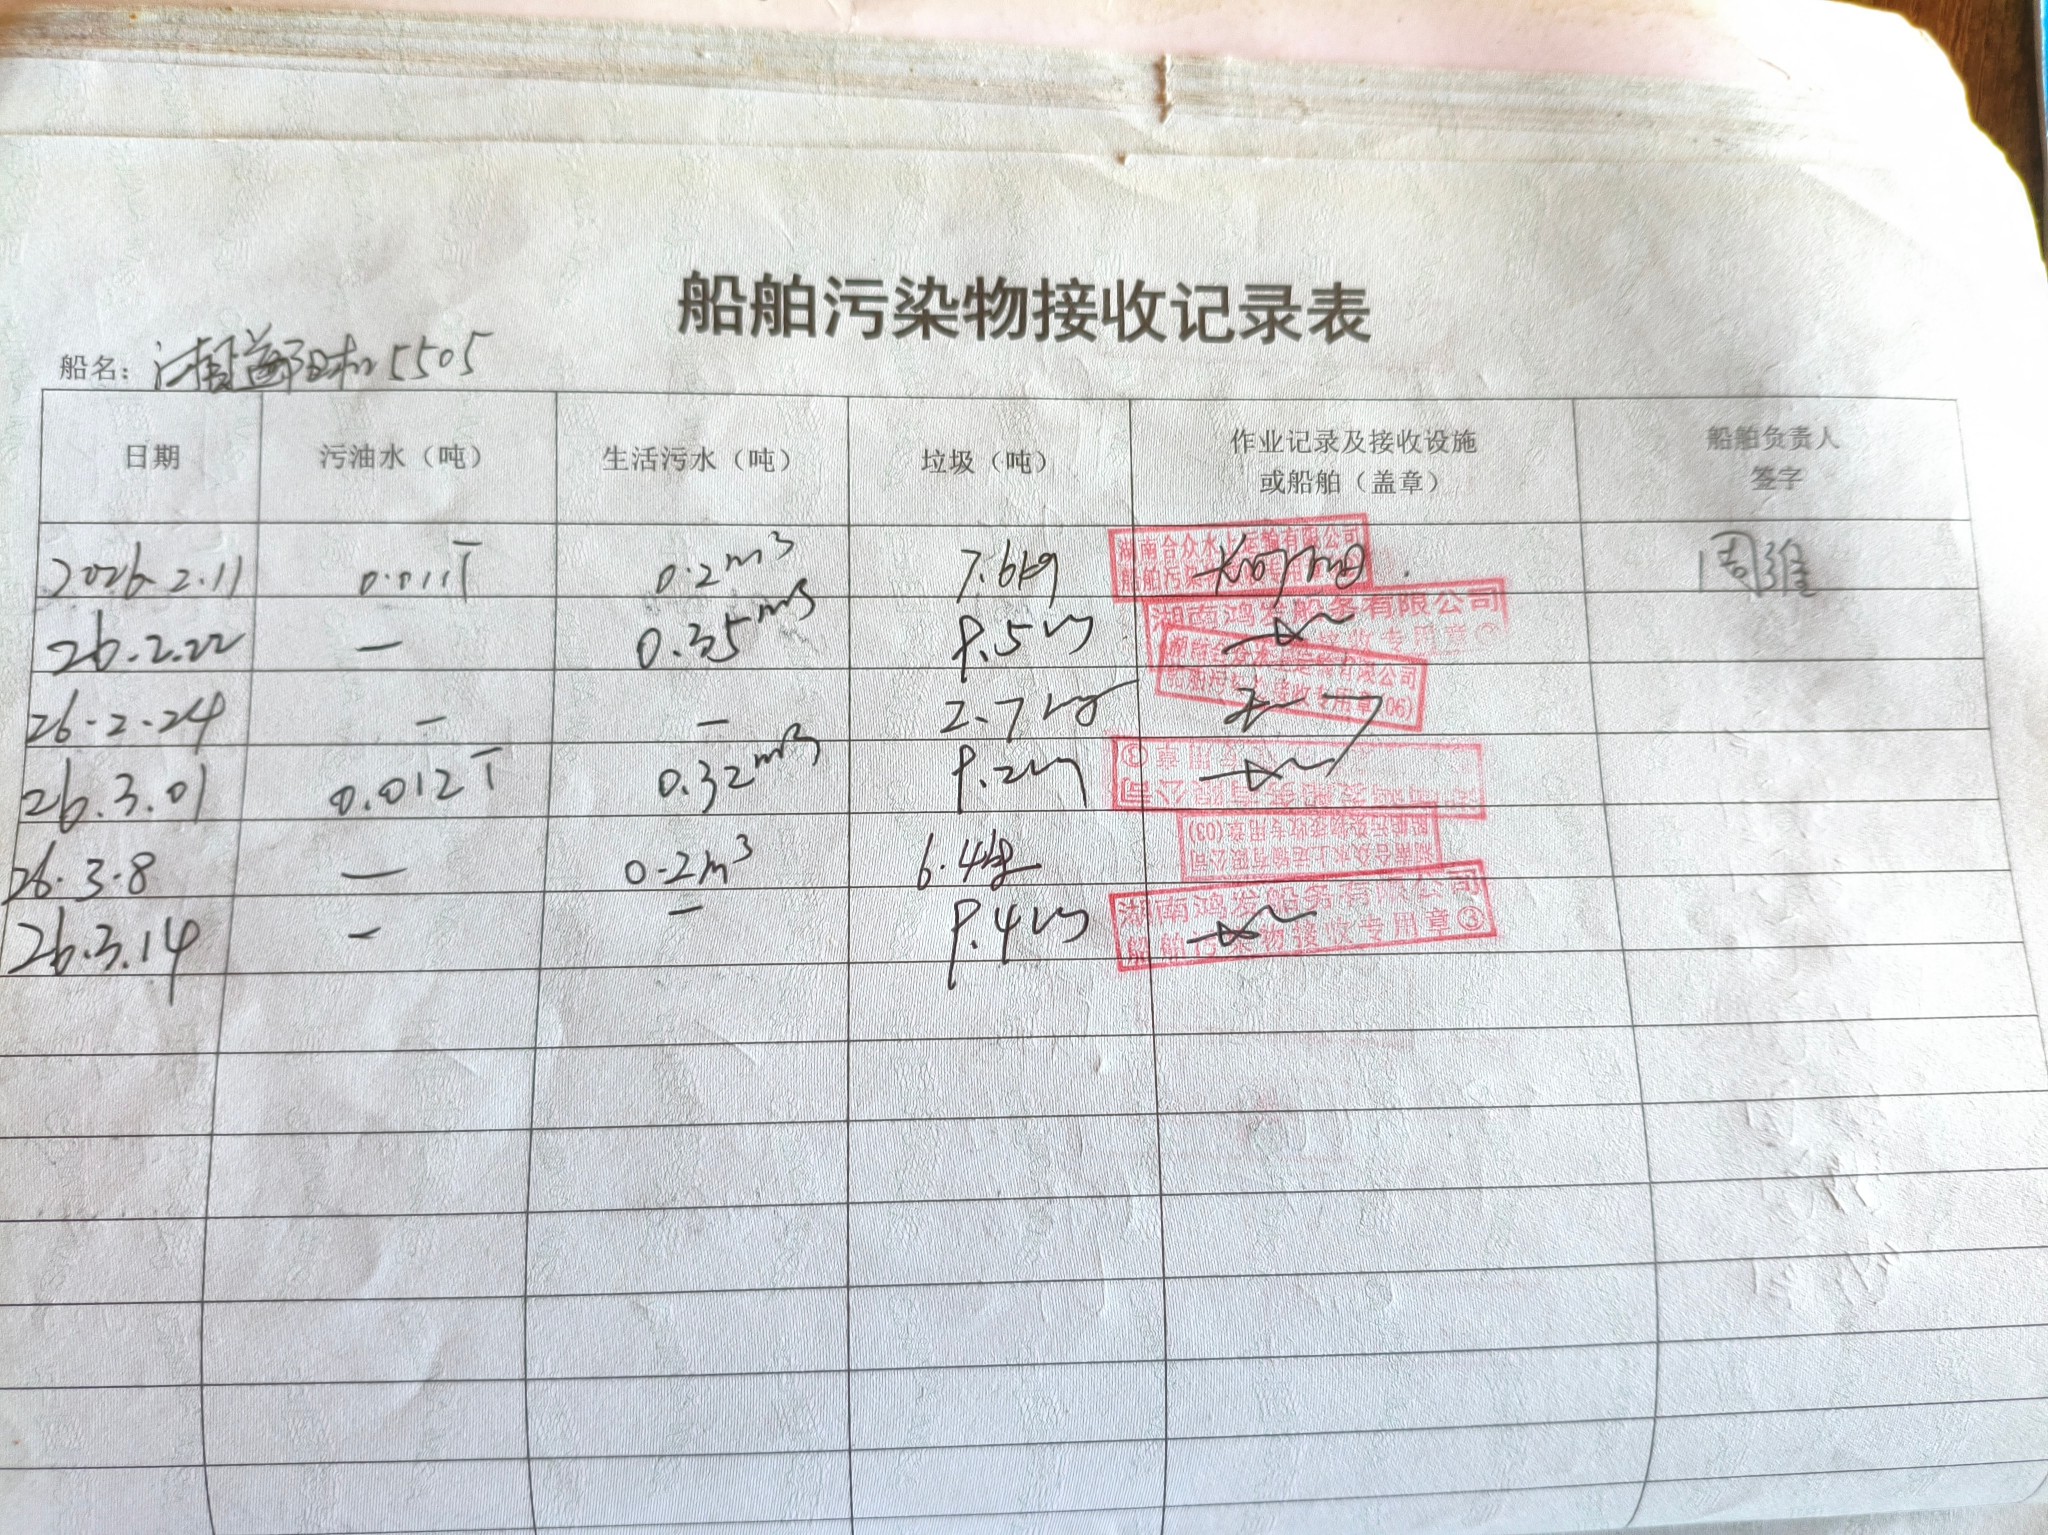 船舶污染物接收记录表
船名: 5505
日期 污油水（吨） 生活污水（吨） 垃圾（吨） 作业记录及接收设施 船舶负责人
或船舶（盖章） 签字
2026.2.11 0.011T 0.2m³ 7.6kg 湖南合众水上运输有限公司 周维
26.2.22 — 0.35m³ 9.5kg 湖南鸿发船务有限公司
接收专用章
26.2.24 — — 2.7kg 接收专用章(06)
26.3.01 0.012T 0.32m³ 9.2kg 专用章③
26.3.8 — 0.2m³ 6.4kg 湖南合众水上运输有限公司
船舶污染物接收专用章(03)
26.3.14 — — 9.4kg 湖南鸿发船务有限公司
船舶污染物接收专用章③